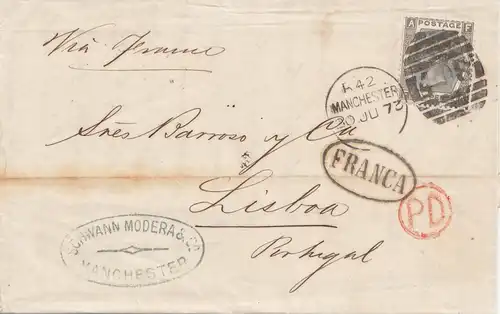 Via France
A POSTAGE F
K 42
MANCHESTER
30 JU 72
Sres Barroso y Ca
FRANCA
Lisboa
PD
Portugal
SCHWANN MODERA & CO
MANCHESTER